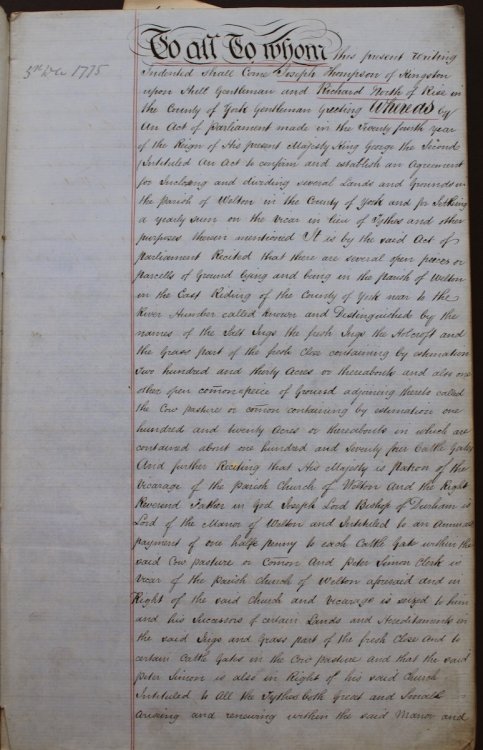 3rd Dec 1775
To all To whom this present writing
Indented shall Come Joseph Thompson of Kingston
upon Hull Gentleman and Richard North of Rise in
the County of York Gentleman Greeting Whereas by
an Act of Parliament made in the Twenty fourth year
of the Reign of His present Majesty King George the Second
Intituled An Act to confirm and establish an Agreement
for Inclosing and dividing several Lands and Grounds in
the Parish of Welton in the County of York and for Settling
a yearly sum on the Vicar in lieu of Tythes and other
purposes therein mentioned It is by the said Act of
parliament Recited that there are several open paces or
parcells of Ground lying and being in the parish of Welton
in the East Riding of the County of York near to the
River Humber called known and Distinguished by the
names of the Salt Ings the fresh Ings the Holcroft and
the Grass part of the fresh Close containing by estimation
Two hundred and thirty Acres or thereabouts and also one
other open comōn peice of Ground adjoining thereto called
the Cow pasture or comōn containing by estimation one
hundred and twenty Acres or thereabouts in which are
contained about one hundred and Seventy four Cattle Gates
And further Reciting that His Majesty is patron of the
Vicarage of the Parish Church of Welton And the Right
Reverend Father in God Joseph Lord Bishop of Durham is
Lord of the Manor of Welton and Intituled to an Annual
payment of one half penny to each Cattle Gate within the
said Cow pasture or Comōn And Peter Simon Clerk is
Vicar of the parish church of Welton aforesaid and in
Right of the said Church and Vicarage is seized to him
and his Successors of certain Lands and Hereditaments in
the said Ings and Grass part of the fresh Close And to
certain Cattle Gates in the Cow pasture and that the said
Peter Simon is also in Right of his said Church
Intituled to All the Tythes both Great and Small
arising and renewing within the said Manor and